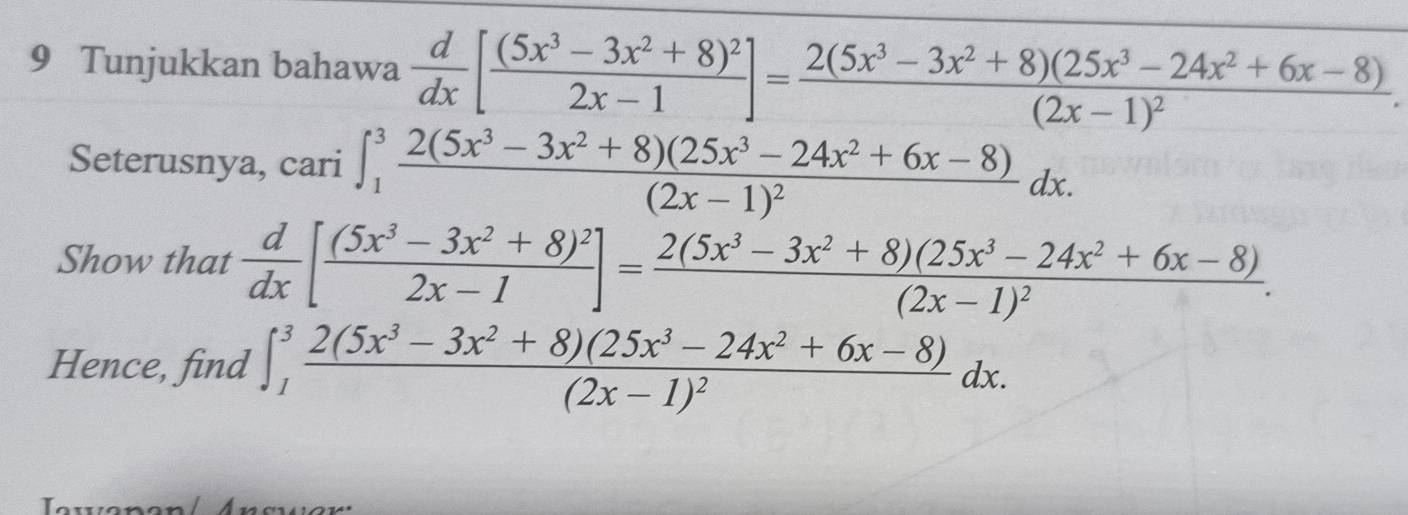 9 Tunjukkan bahawa $\frac{d}{dx}\left[\frac{(5x^3 - 3x^2 + 8)^2}{2x - 1}\right] = \frac{2(5x^3 - 3x^2 + 8)(25x^3 - 24x^2 + 6x - 8)}{(2x - 1)^2}$.
Seterusnya, cari $\int_1^3 \frac{2(5x^3 - 3x^2 + 8)(25x^3 - 24x^2 + 6x - 8)}{(2x - 1)^2} dx.$
Show that $\frac{d}{dx}\left[\frac{(5x^3 - 3x^2 + 8)^2}{2x - 1}\right] = \frac{2(5x^3 - 3x^2 + 8)(25x^3 - 24x^2 + 6x - 8)}{(2x - 1)^2}$.
Hence, find $\int_1^3 \frac{2(5x^3 - 3x^2 + 8)(25x^3 - 24x^2 + 6x - 8)}{(2x - 1)^2} dx.$
Jawapan/ Answer: